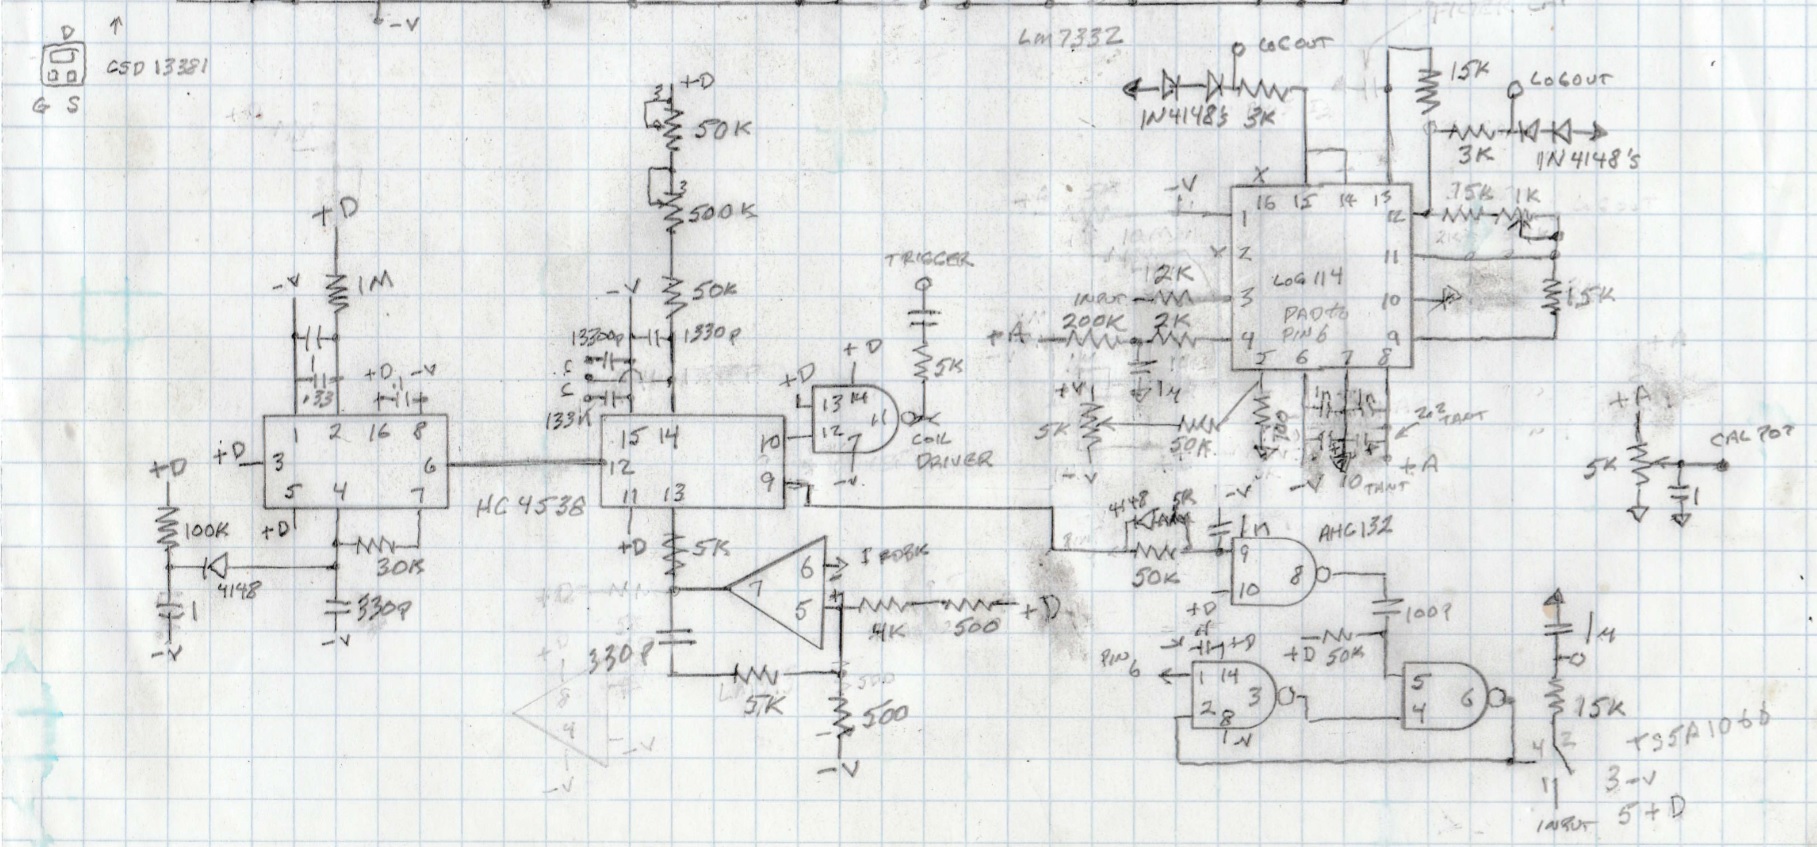 -V
D
CSD 13381
G S
+D
1M
-V
1
.33
+D .1 -V
1 2 16 8
+D 3 6
5 4 7
+D
+D
100K
4148
30K
1
330P
-V
-V
HC 4538
+D
3
50K
3
500K
50K
-V
1330P
15 14
12 10
11 13 9
+D
5K
330P
5K
7
6
5
4K
500
+D
500
-V
8
4
-V
-V
TRIGGER
5K
+D
+D
13 14
12 11
7
-V
COIL
DRIVER
LM7332
LOGOUT
1N4148's 3K
15K
LOGOUT
3K
1N4148's
-V
X
16 15 14 13
1 12
X 2 11
3 10
4 9
5 6 7 8
LOG 114
PAD to
PIN 6
1K
INPUT
+A 200K 2K
1µ
+V
5K
-V
50K
100
-V
10
TANT
TANT
+A
+A
5K
CAL POT
1
4148 5K
-V
1n
50K
AHC132
9
10 8
+D
100P
+D 50K
+D
PIN
6
1 14
2 3
8
-V
5
4 6
1µ
15K
4 2
1
INPUT
TS5A1066
3 -V
5 +D